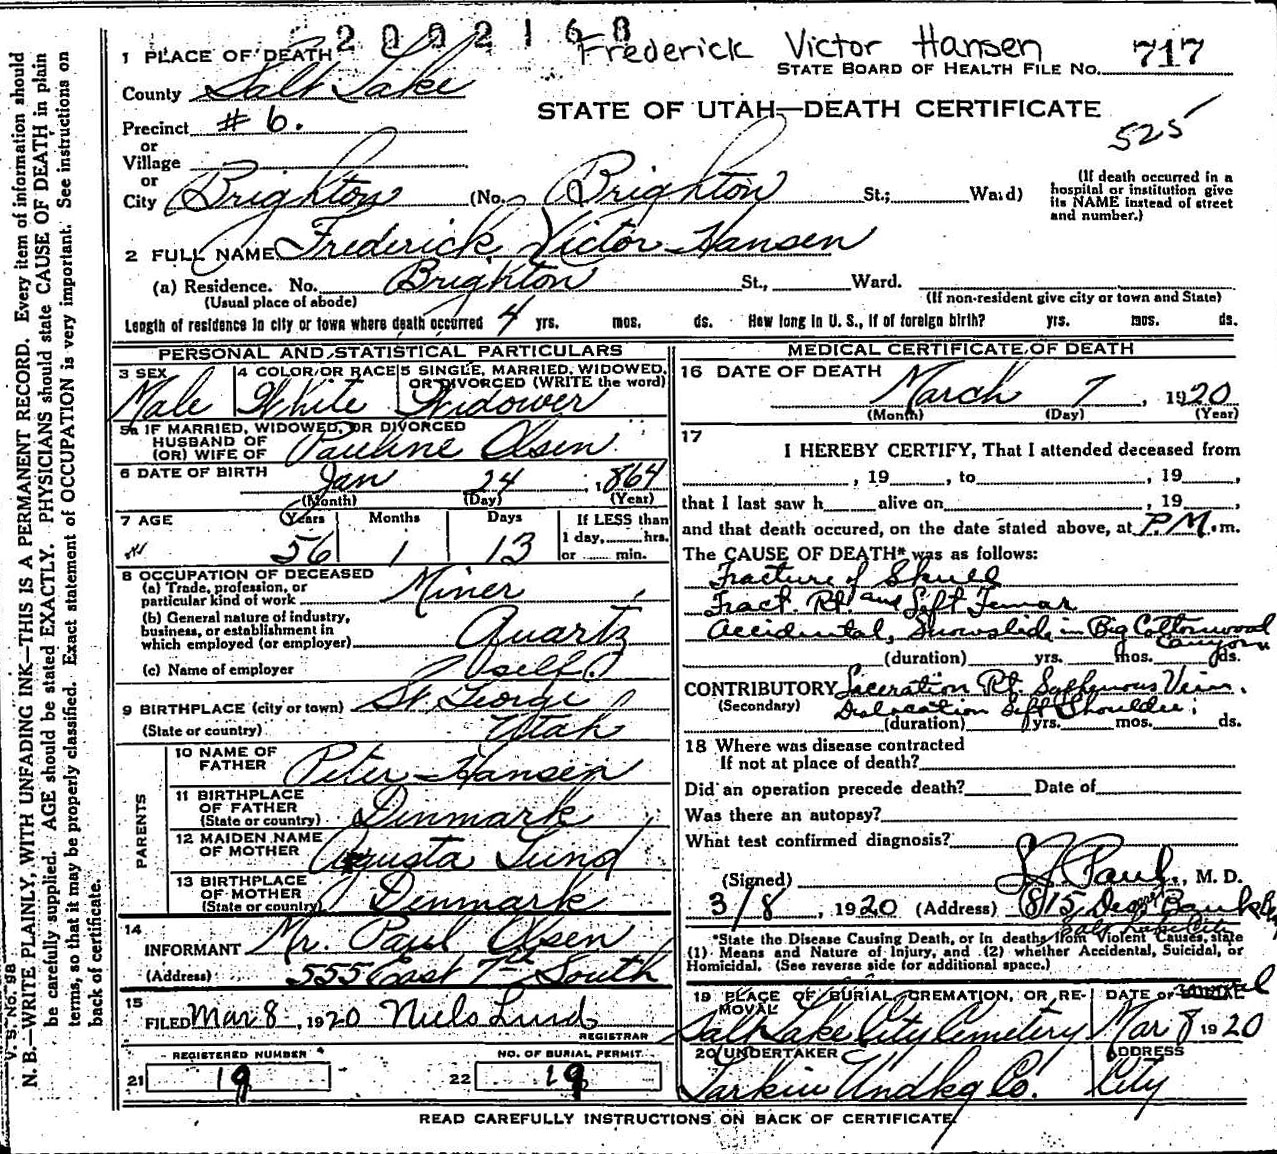 2002168
Frederick Victor Hansen
STATE BOARD OF HEALTH FILE NO. 717
1 PLACE OF DEATH
County Salt Lake
STATE OF UTAH—DEATH CERTIFICATE
Precinct #6.
525
or
Village
or
City Brighton (No. Brighton St.; Ward)
(If death occurred in a
hospital or institution give
its NAME instead of street
and number.)
2 FULL NAME Frederick Victor Hansen
(a) Residence. No. Brighton St., Ward.
(Usual place of abode) (If non-resident give city or town and State)
Length of residence in city or town where death occurred 4 yrs. mos. ds. How long in U. S., if of foreign birth? yrs. mos. ds.
PERSONAL AND STATISTICAL PARTICULARS
3 SEX Male
4 COLOR OR RACE White
5 SINGLE, MARRIED, WIDOWED,
OR DIVORCED (WRITE the word)
Widower
5a IF MARRIED, WIDOWED, OR DIVORCED
HUSBAND OF
(OR) WIFE OF Pauline Olsen
6 DATE OF BIRTH Jan 24, 1864
(Month) (Day) (Year)
7 AGE Years Months Days
56 1 13
If LESS than
1 day, hrs.
or min.
8 OCCUPATION OF DECEASED
(a) Trade, profession, or
particular kind of work Miner
(b) General nature of industry,
business, or establishment in
which employed (or employer) Quartz
(c) Name of employer self
9 BIRTHPLACE (city or town) St. George
(State or country) Utah
PARENTS
10 NAME OF
FATHER Peter Hansen
11 BIRTHPLACE
OF FATHER
(State or country) Denmark
12 MAIDEN NAME
OF MOTHER Augusta Lund
13 BIRTHPLACE
OF MOTHER
(State or country) Denmark
14
INFORMANT Mr. Paul Olsen
(Address) 555 East 7th South
15
FILED Mar 8, 1920 Niels Lind
REGISTRAR
REGISTERED NUMBER
21 19
NO. OF BURIAL PERMIT
22 19
MEDICAL CERTIFICATE OF DEATH
16 DATE OF DEATH
March 7, 1920
(Month) (Day) (Year)
17
I HEREBY CERTIFY, That I attended deceased from
, 19 , to , 19 ,
that I last saw h alive on , 19 ,
and that death occured, on the date stated above, at P.M. m.
The CAUSE OF DEATH* was as follows:
Fracture of Skull
Fract. Rt. and Left Femur
Accidental, Snowslide in Big Cottonwood
Canyon
(duration) yrs. mos. ds.
CONTRIBUTORY Laceration Rt. Saphenous Vein.
(Secondary) Dislocation Left Shoulder.
(duration) yrs. mos. ds.
18 Where was disease contracted
If not at place of death?
Did an operation precede death? Date of
Was there an autopsy?
What test confirmed diagnosis?
(Signed) Paul, M. D.
3/8, 1920 (Address) 815 Bank
Salt Lake City
*State the Disease Causing Death, or in deaths from Violent Causes, state
(1) Means and Nature of Injury, and (2) whether Accidental, Suicidal, or
Homicidal. (See reverse side for additional space.)
19 PLACE OF BURIAL, CREMATION, OR RE-
MOVAL
Salt Lake City Cemetery
DATE OF
Mar 8 1920
20 UNDERTAKER
Larkin Undkg Co.
ADDRESS
City
READ CAREFULLY INSTRUCTIONS ON BACK OF CERTIFICATE.
V. S. No. 98
N. B.—WRITE PLAINLY, WITH UNFADING INK—THIS IS A PERMANENT RECORD. Every item of information should
be carefully supplied. AGE should be stated EXACTLY. PHYSICIANS should state CAUSE OF DEATH in plain
terms, so that it may be properly classified. Exact statement of OCCUPATION is very important. See instructions on
back of certificate.